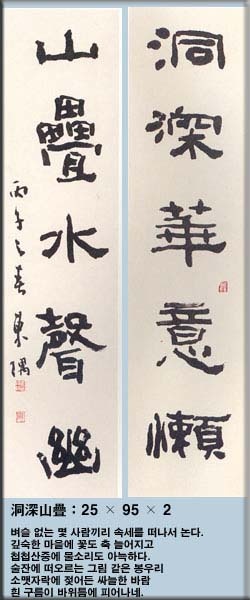 洞深華意懶
山疊水聲幽
丙午之春 東隅
洞深山疊 : 25 × 95 × 2
벼슬 없는 몇 사람끼리 속세를 떠나서 논다.
깊숙한 마을에 꽃도 축 늘어지고
첩첩산중에 물소리도 아늑하다.
술잔에 떠오르는 그림 같은 봉우리
소맷자락에 젖어든 싸늘한 바람
흰 구름이 바위틈에 피어나네.